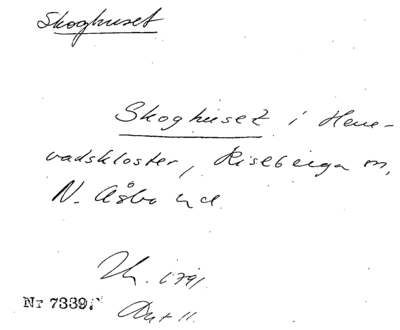 Skoghuset
Skoghuset i Herre-
vadskloster, Riseberga sn,
N. Åsbo hd.
Th. 1791
Nr 7339.